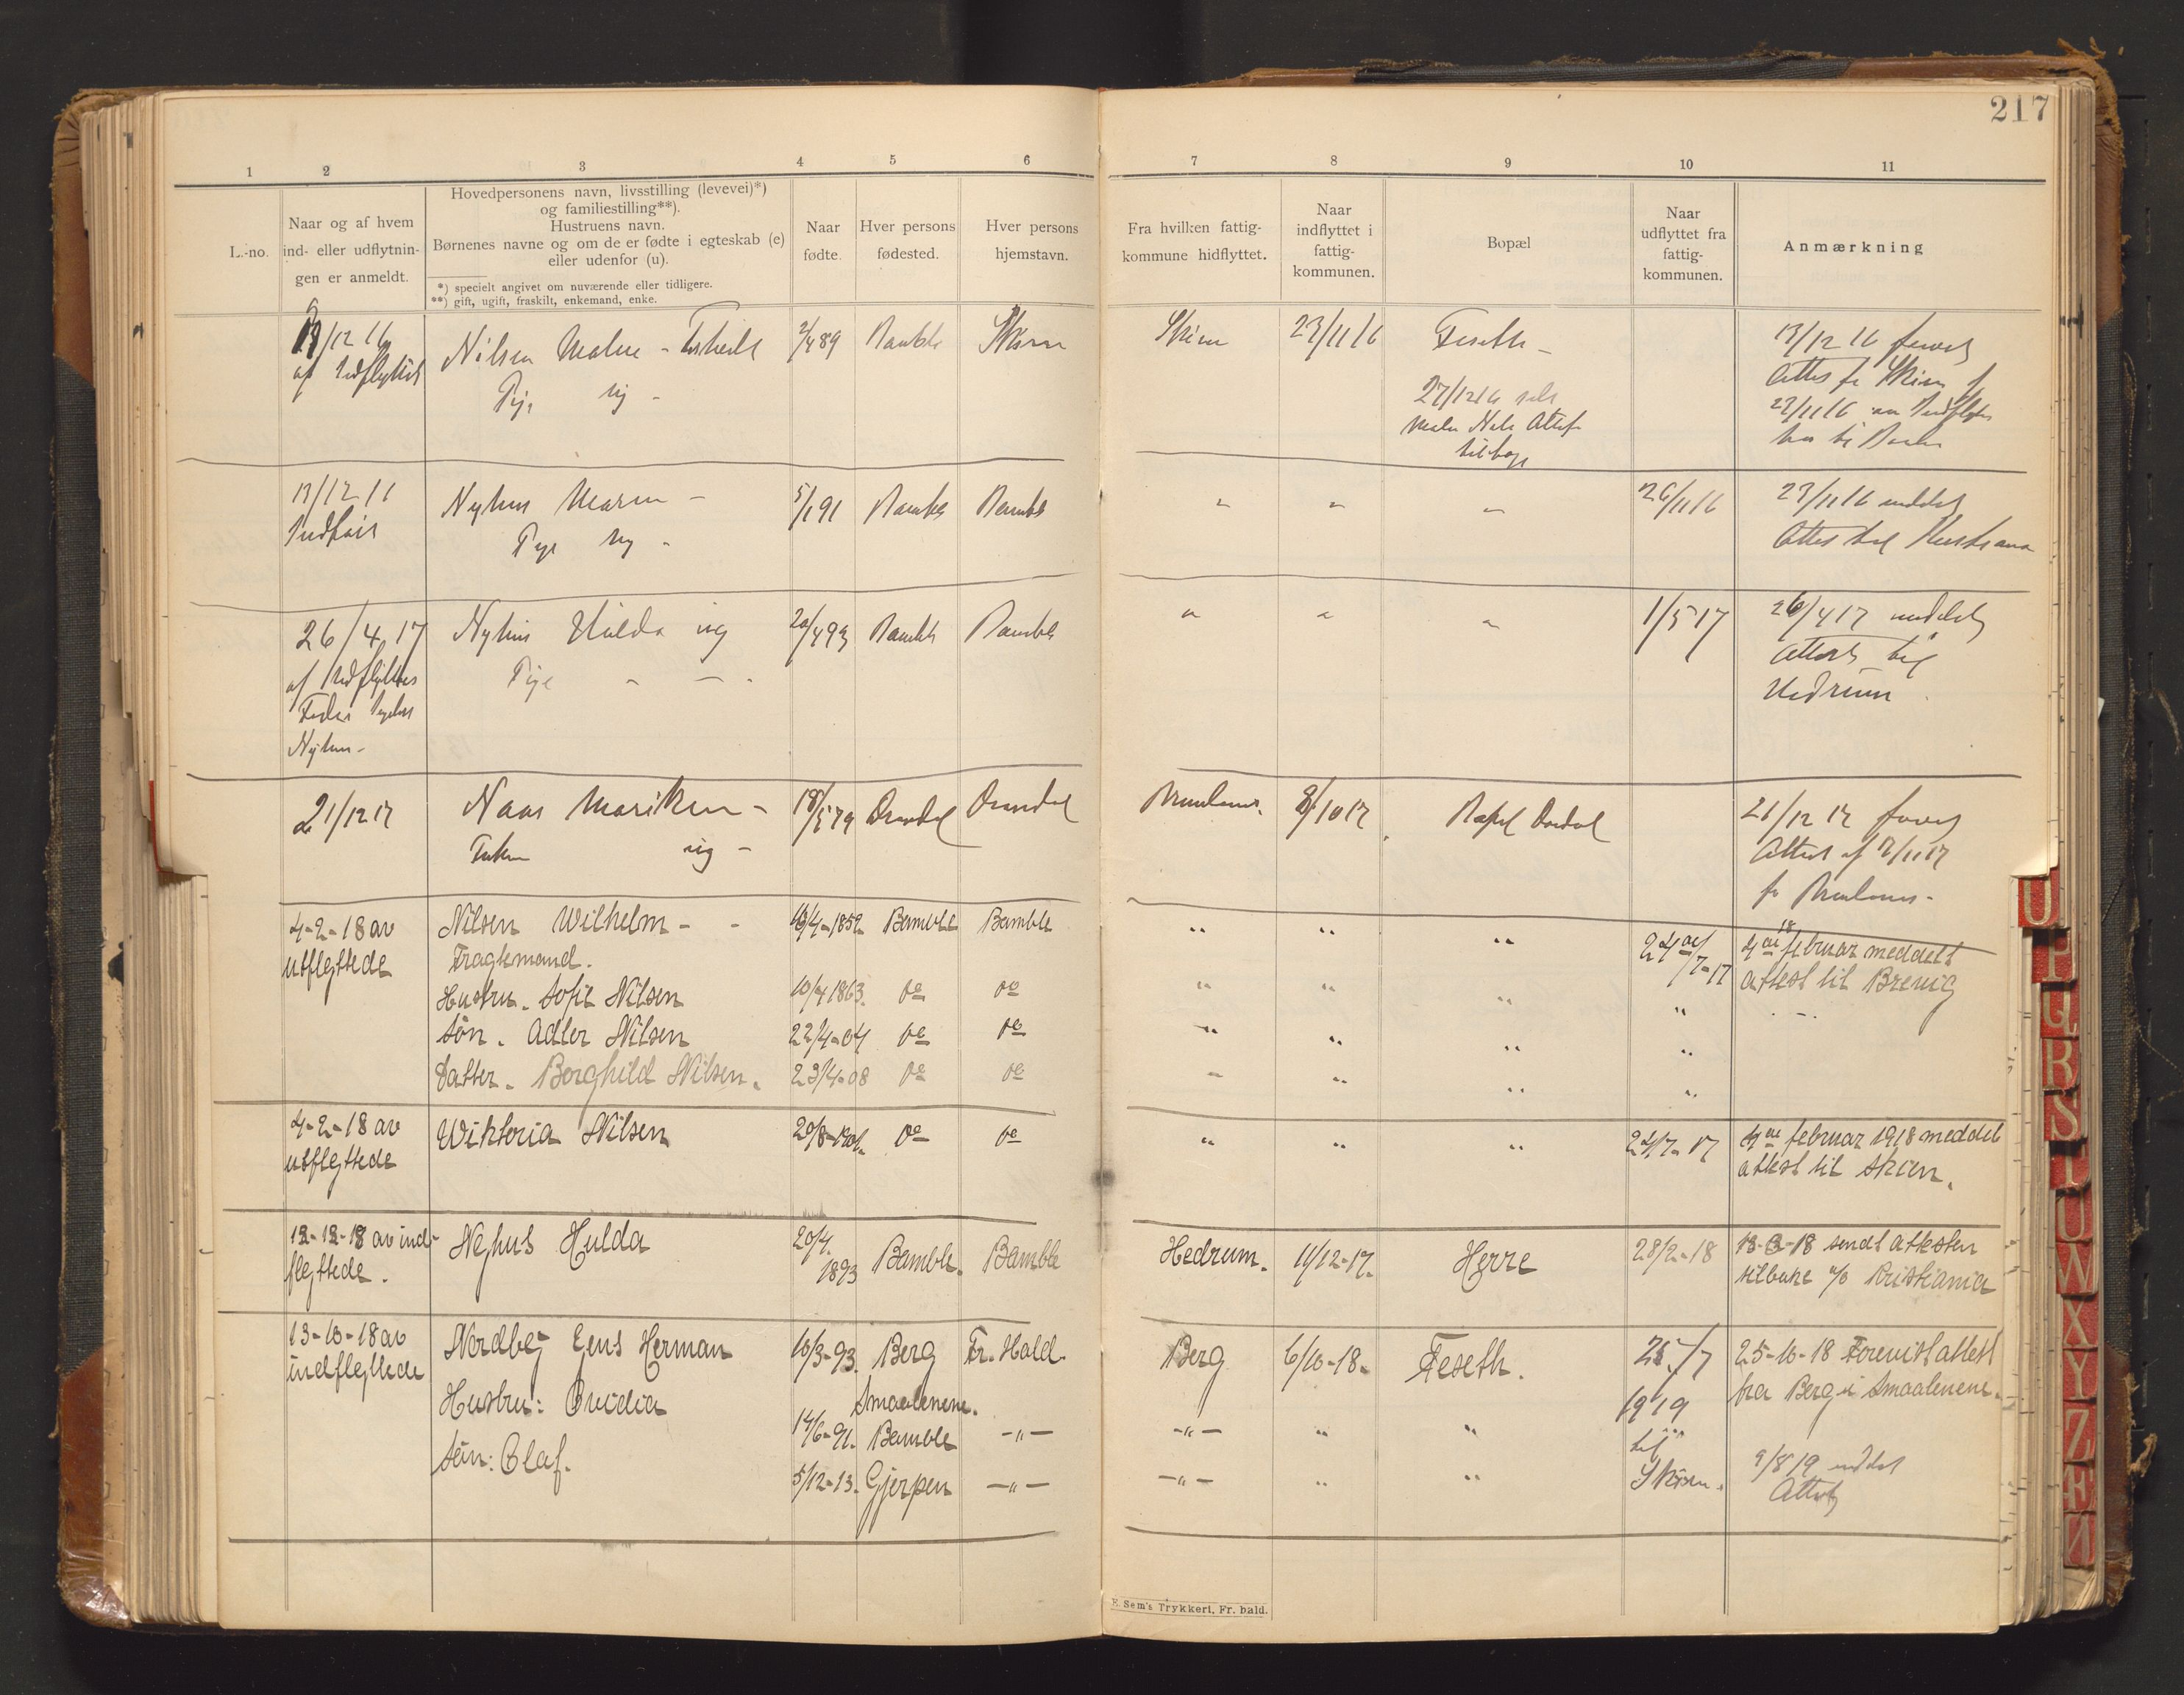 217
1 2 3 4 5 6 7 8 9 10 11
L.-no.
Naar og af hvem
ind- eller udflytnin-
gen er anmeldt.
Hovedpersonens navn, livsstilling (levevei)*)
og familiestilling**).
Hustruens navn.
Børnenes navne og om de er fødte i egteskab (e)
eller udenfor (u).
*) specielt angivet om nuværende eller tidligere.
**) gift, ugift, fraskilt, enkemand, enke.
Naar
fødte.
Hver persons
fødested.
Hver persons
hjemstavn.
Fra hvilken fattig-
kommune hidflyttet.
Naar
indflyttet i
fattig-
kommunen.
Bopæl
Naar
udflyttet fra
fattig-
kommunen.
Anmærkning
13/12 16 Nilsen Malue - 2/4 89 Bamble Skien Skien 23/11 16 Feseth - 13/12 16
af Indflyttet
Pige ug -
27/12 16
Attest fr Skien af
23/11 16
tilbage
13/12 16 Nyhus Maren - 5/1 91 Bamble Bamble " " " 26/11 16 23/11 16 meddelt
Pige ug - Attest til Kristiania
26/4 17 Nyhus Hulda ug 20/4 93 Bamble Bamble " " " 1/5 17 26/4 17 meddelt
af Udflyttedes Pige - - - Attest til
Fader Hedrum
Nyhus -
21/12 17 Naas Mariken - 18/5 79 Drandal Drandal Brunlanes 8/10 17 21/12 17
ug - Attest af 12/11 17
fr Brunlanes -
4-2-18 av Nilsen Wilhelm - - 18/4-1852 Bamble Bamble " " " 24de/7-17 4de 18 februar meddelt
utflyttede Fragtemand. attest til Brevig
Hustru. Sofie Nilsen 10/4 1863. do do " " " "
Søn. Adler Nilsen 22/4-04 do do " " " "
Datter. Borghild Nilsen. 23/4-08 do do " " " "
4-2-18 av Wiktoria Nilsen 20/8-1901. do do " " " 24/7-17 4de februar 1918 meddelt
utflyttede attest til Skien.
12-12-18 av ind- Nyhus Hulda 20/4. 1893 Bamble. Bamble Hedrum. 11/12-17. Herre 28/2-18 18-3-18 sendt attesten
flyttede. tilbake til Kristiania
13-10-18 av Nordby Jens Herman 16/3-93. Berg Fr. Hald. Berg 6/10-18. Feseth. 25/7 25-10-18 Forevist attest
indflyttede Smaalenene. 1919 fra Berg i Smaalenene.
Hustru: Ovidia 14/6-91. Bamble -"- -"- " " til
Søn: Olaf. 5/12-13. Gjerpen -"- -"- " " Skien. 9/8 19 meddelt
Attest
E. Sem's Trykkeri, Fr. hald.
U
P
Q
R
S
T
U
W
X
Y
Z
Æ
Ø